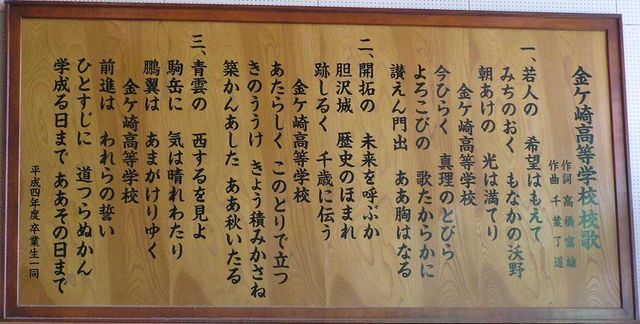 金ケ崎高等学校校歌
作詞 高橋富雄
作曲 千葉了道
一、若人の 希望はもえて
みちのおく もなかの沃野
朝あけの 光は満てり
金ケ崎高等学校
今ひらく 真理のとびら
よろこびの 歌たからかに
讃えん門出 ああ胸はなる
二、開拓の 未来を呼ぶか
胆沢城 歴史のほまれ
跡しるく 千歳に伝う
金ケ崎高等学校
あたらしく このとりで立つ
きのううけ きょう積みかさね
築かんあした ああ秋いたる
三、青雲の 西するを見よ
駒岳に 気は晴れわたり
鵬翼は あまがけりゆく
金ケ崎高等学校
前進は われらの誓い
ひとすじに 道つらぬかん
学成る日まで ああその日まで
平成四年度 卒業生一同